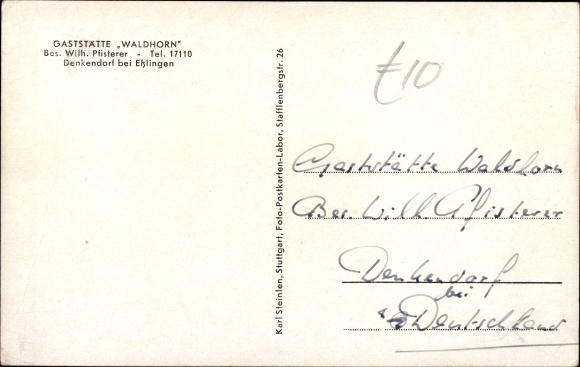 GASTSTÄTTE „WALDHORN"
Bes. Wilh. Pfisterer - Tel. 17110
Denkendorf bei Eßlingen
Karl Steinlen, Stuttgart, Foto-Postkarten-Labor, Stafflenbergstr. 26
£10
Gaststätte Waldhorn
Bes. Wilh. Pfisterer
Denkendorf
bei
Deutschland